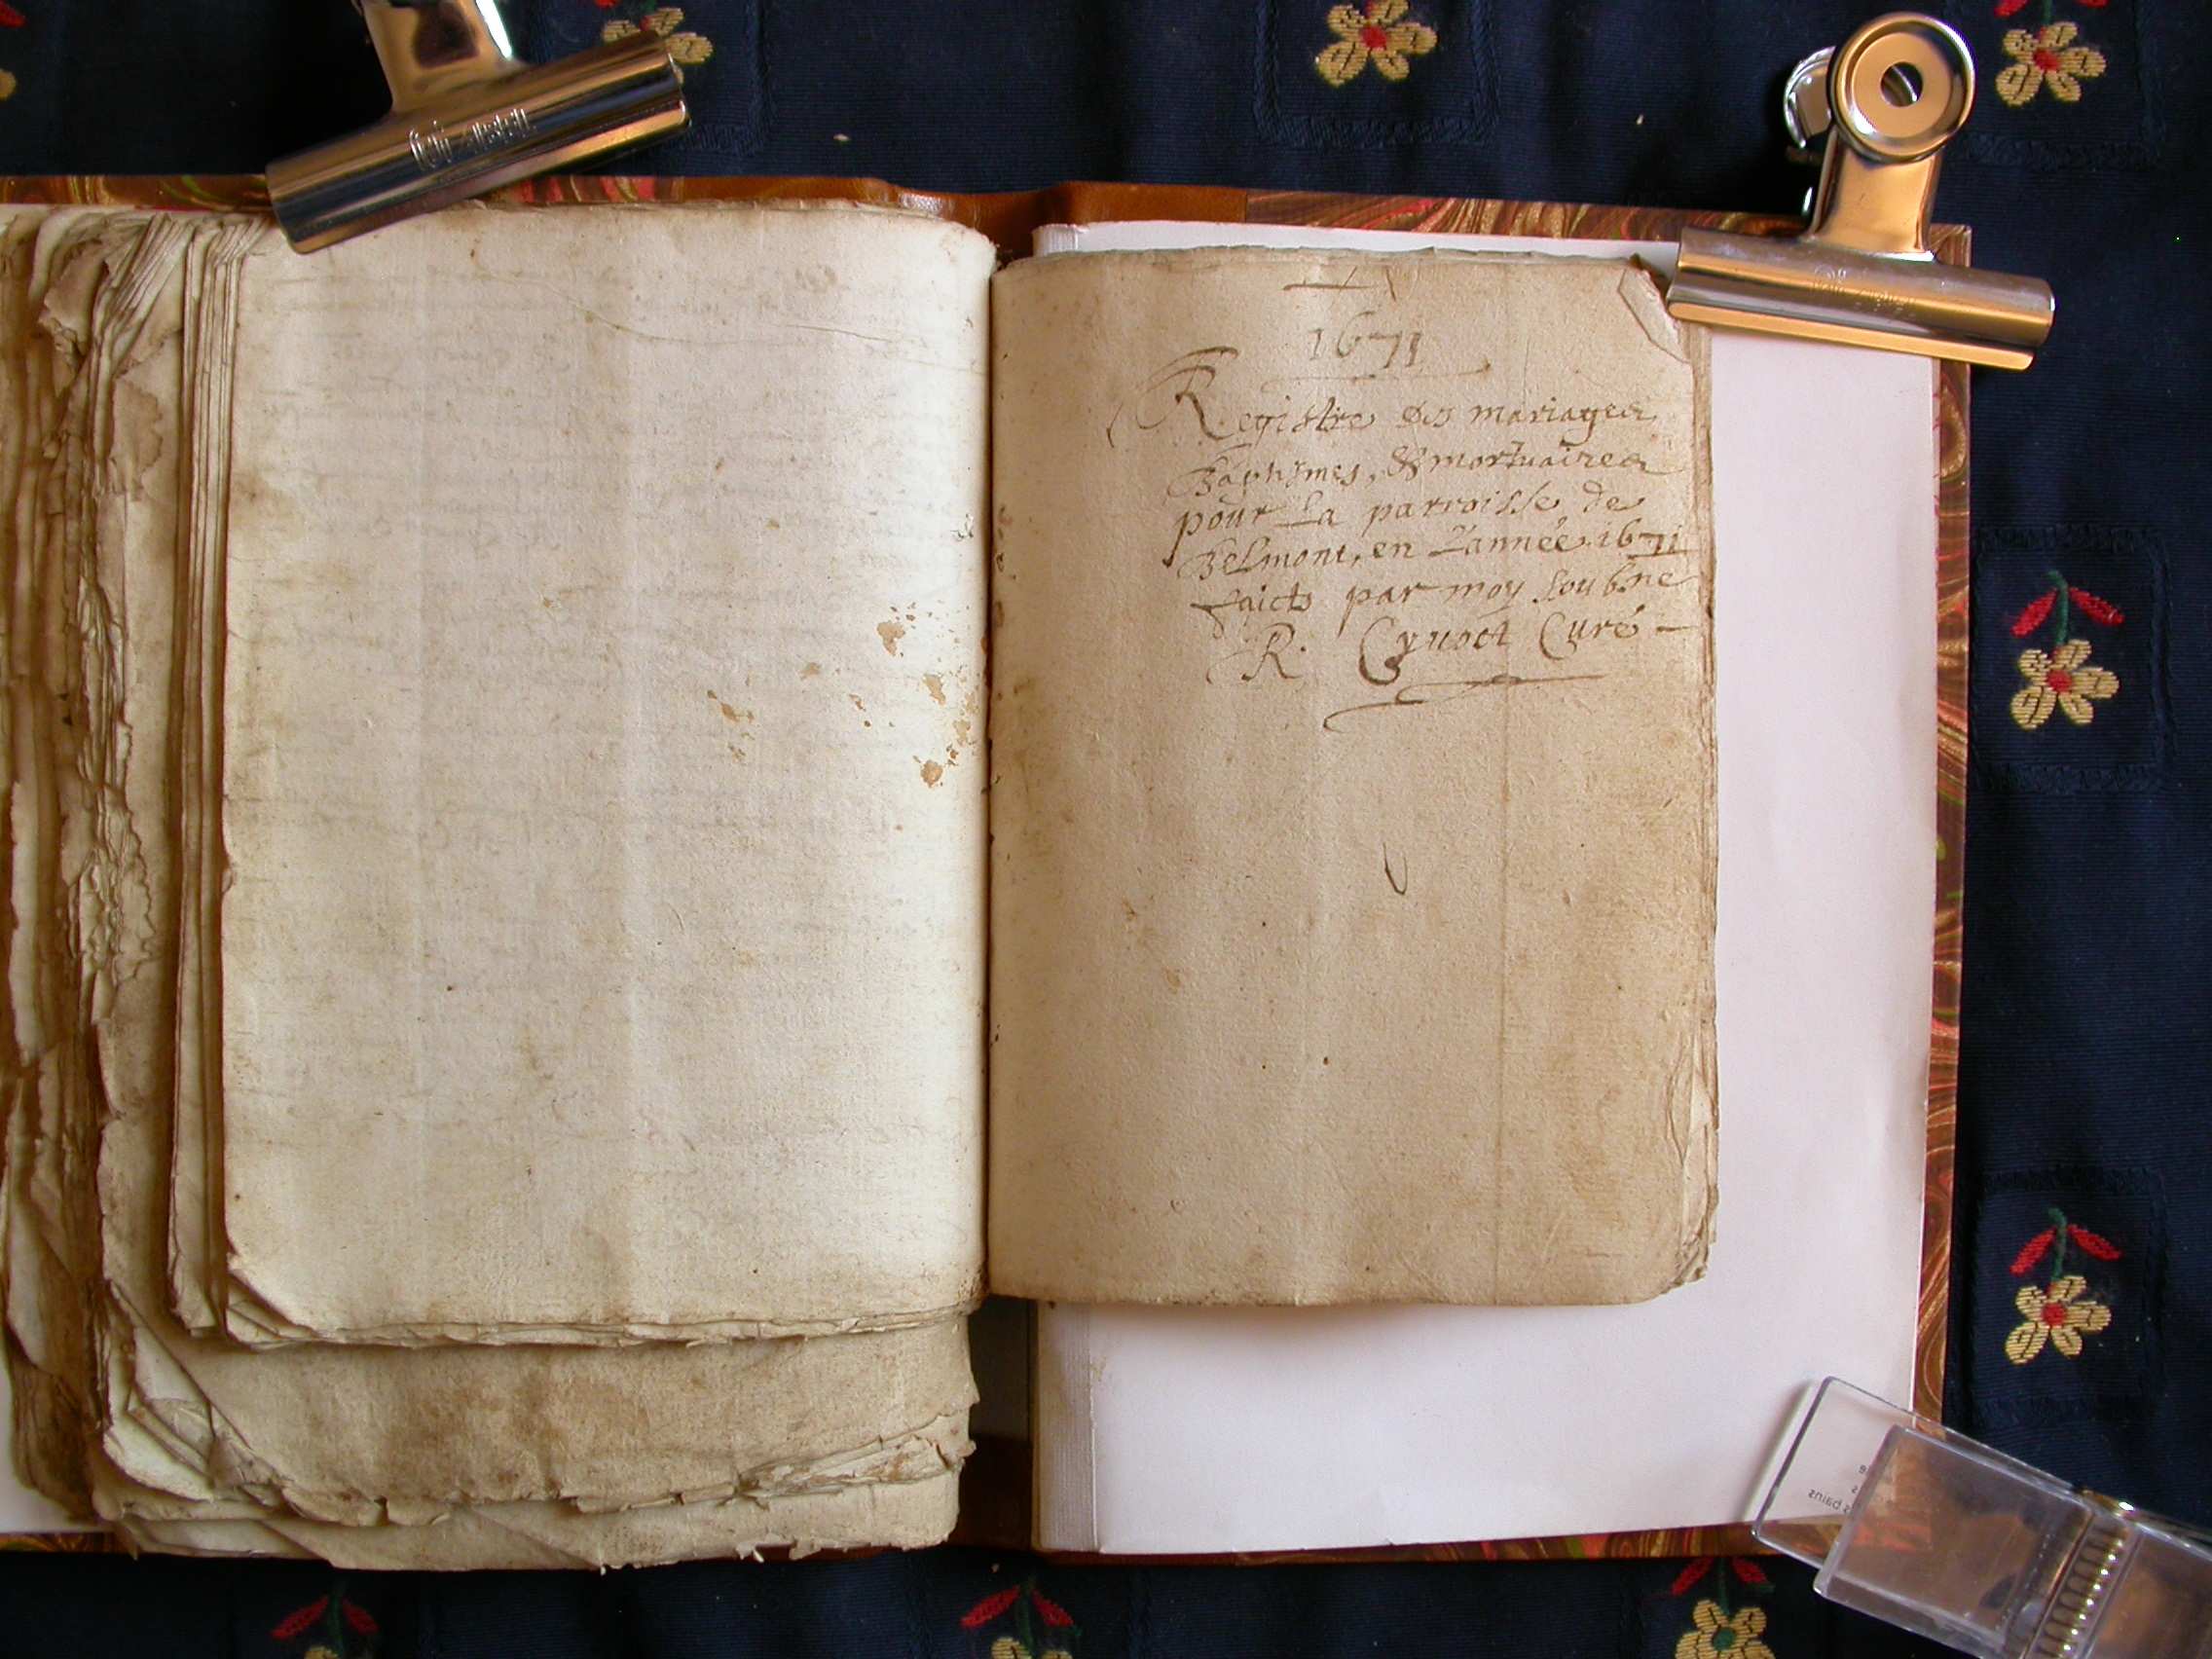 1671
Registre des mariages
Baptismes, & mortuaires
pour La parroisse de
Belmont, en L'année 1671
faicts par moy soubsne
R. Curé